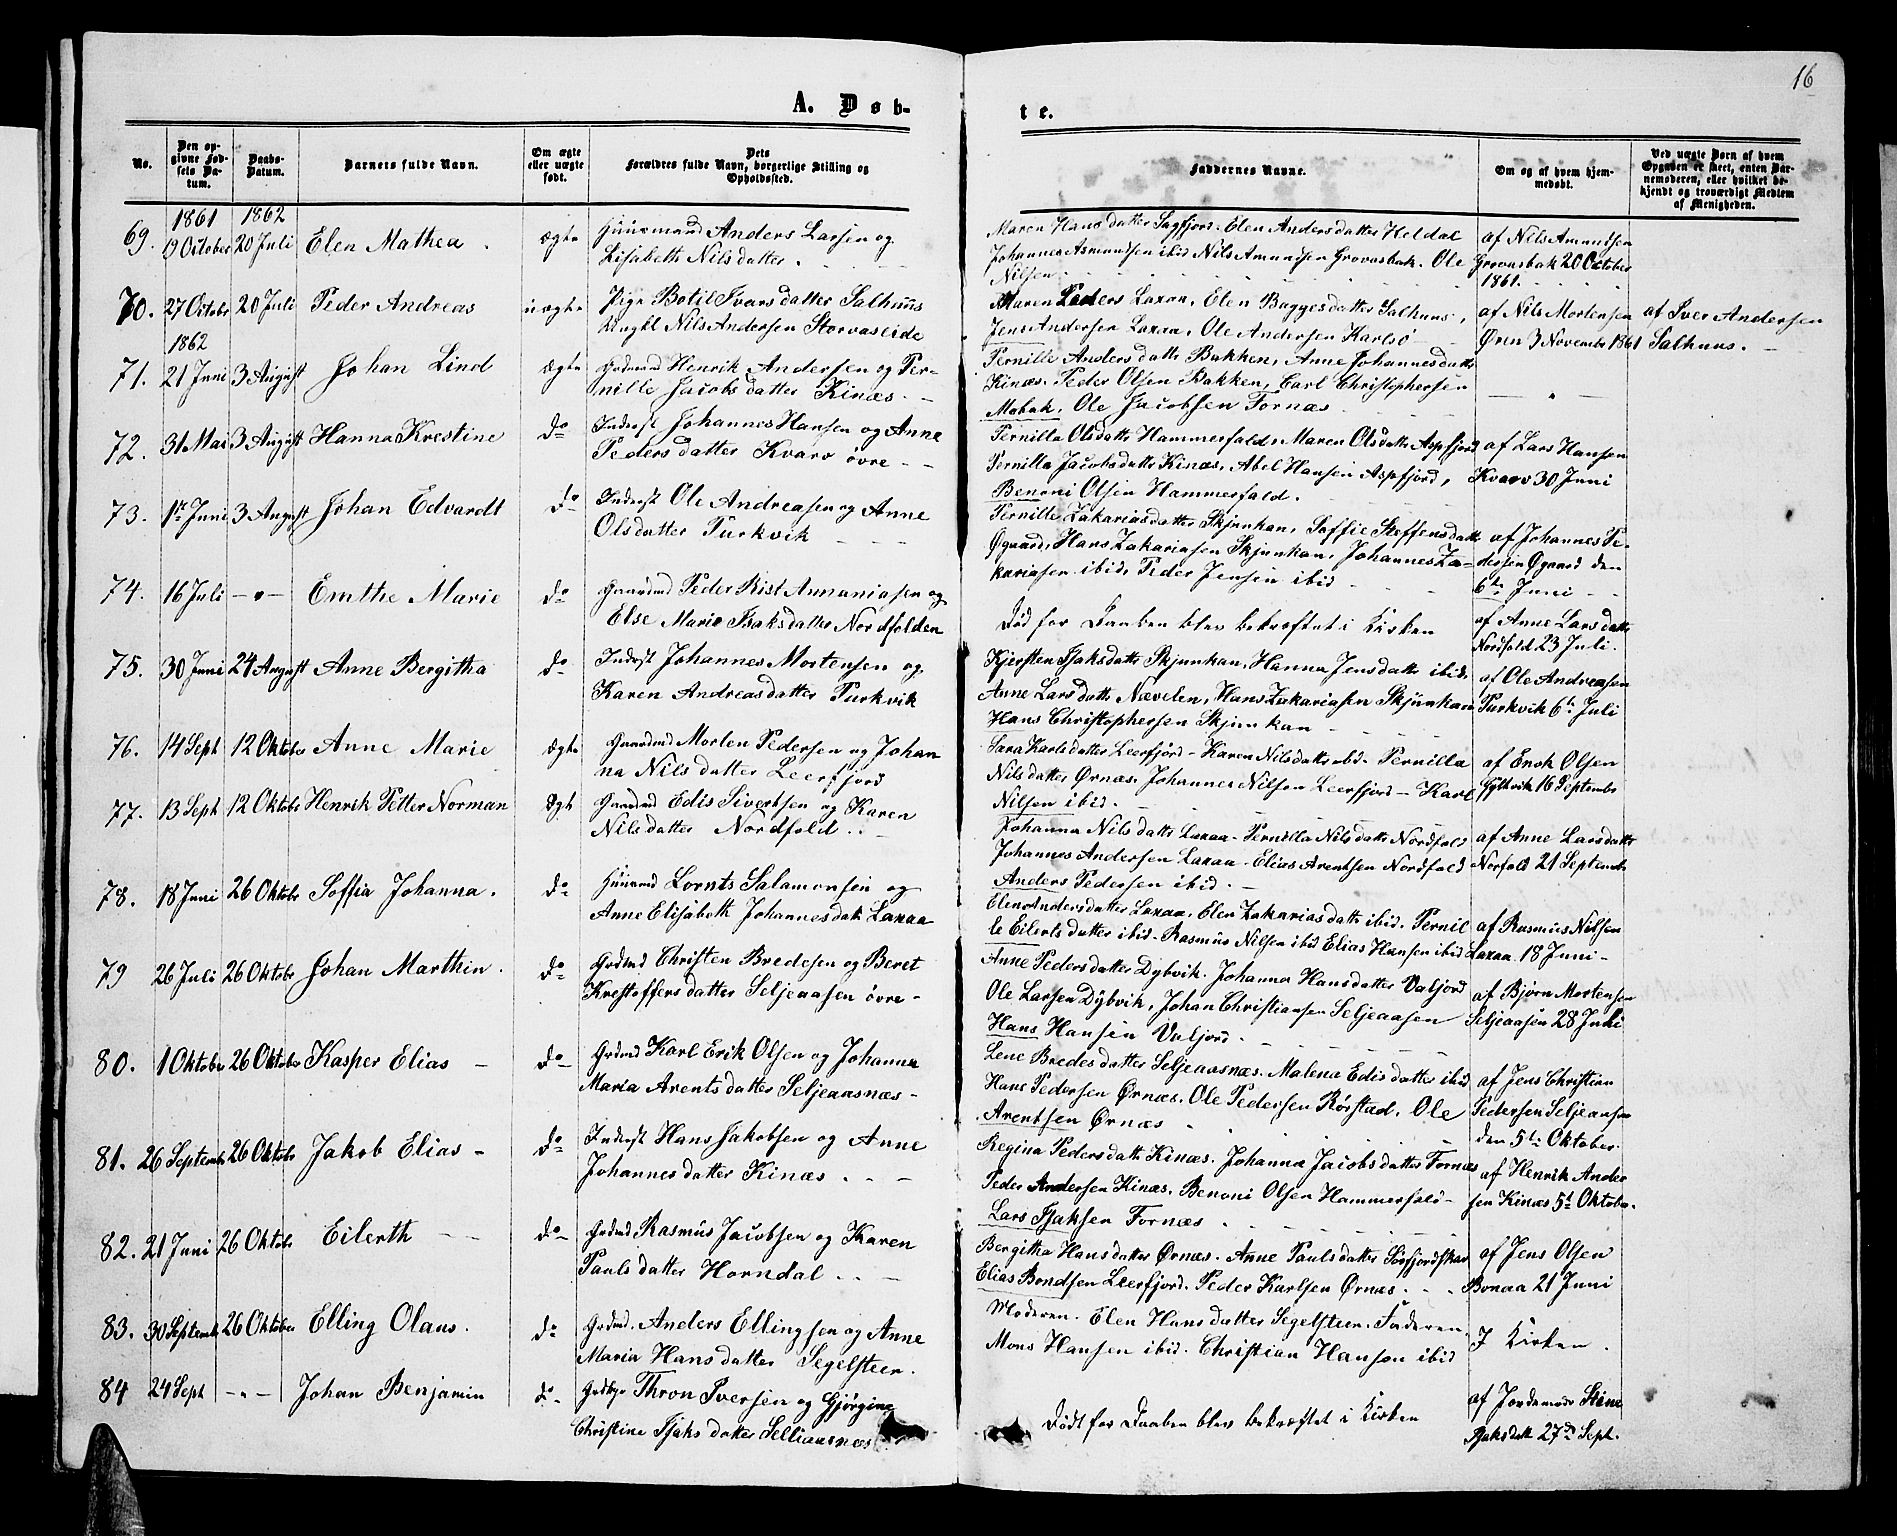 16
A. Døb-
te.
No.
Den op-
givne Fød-
sels Da-
tum.
Daabs-
Datum.
Barnets fulde Navn.
Om ægte
eller uægte
født.
Dets
Forældres fulde Navn, borgerlige Stilling og
Opholdssted.
Faddernes Navne.
Om og af hvem hjem-
medøbt.
Ved uægte Børn af hvem
Opgaven er skeet, enten Bar-
nemoderen, eller hvilket be-
kjendt og troværdigt Medlem
af Menigheden.
1861 1862
69. 19 October 20 Juli Elen Mathea. ægte Huusmand Anders Larsen og
Lisabeth Nilsdatter.
Maren Hansdatter Sagfjord. Elen Andersdatter Heldal
Johannes Asmundsen ibid Nils Amundsen Grovasbak. Ole
Nilsen
af Nils Amundsen
Grovasbak 20 October
1861.
70. 27 Octobr 20 Juli Peder Andreas uægte Pige Botil Ivarsdatter Salhuus
Ungkl Nils Andersen Storvaseide
Maren Peders Laxaa, Elen Baggesdatter Salhuus,
Jens Andersen Laxaa, Ole Andersen Karlsö
af Nils Mortensen
Ören 3 Novembr 1861
af Iver Andersen
Salhuus.
1862
71. 21 Juni 3 August Johan Lind ægte Grdmd Henrik Andersen og Per-
nille Jacobsdatter Kinæs.
Pernille Andersdattr Bakken, Anne Johannesdattr
Kinæs. Peder Olsen Bakken, Carl Christophersen
Mobak, Ole Jacobsen Fornæs
72. 31 Mai 3 August Hanna Krestine do Inderst Johannes Hansen og Anne
Pedersdatter Kvarv övre
Pernilla Olsdattr Hammerfald, Maren Olsdattr Aspfjord
Pernilla Jacobsdattr Kinæs, Abel Hansen Aspfjord,
Benoni Olsen Hammerfald.
af Lars Hansen
Kvarv 30 Juni
73. 1ste Juni 3 August Johan Edvardt do Inderst Ole Andreasen og Anne
Olsdatter Purkvik
Pernille Zakariasdatter Skjunkan, Soffie Steffensdattr
Øgaard, Hans Zakariasen Skjunkan, Johannes Za-
kariasen ibid, Peder Jensen ibid
af Johannes Pe-
dersen Øgaard den
6te Juni
74. 16 Juli -"- Emthe Marie do Gaardmd Peder Rist Annaniasen og
Else Marie Isaksdatter Nordfolden
Død før Daaben blev bekræftet i Kirken
af Anne Larsdattr
Nordfold 23 Juli.
75. 30 Juni 24 August Anne Bergitha do Inderst Johannes Mortensen og
Karen Andreasdatter Purkvik
Kjersten Isaksdattr Skjunkan, Hanna Jensdattr ibid,
Anne Larsdattr Nævelen, Hans Zakariasen Skjunkan
Hans Christophersen Skjunkan
af Ole Andreasen
Purkvik 6te Juli
76. 14 Sept 12 Oktober Anne Marie ægte Gaardmd Morten Pedersen og Johan
na Nilsdatter Leerfjord
Sara Karlsdatter Leerfjord - Karen Nilsdattr ibd. Pernilla
Nilsdatter Ørnæs. Johannes Nilsen Leerfjord - Karl
Nilsen ibid.
af Enok Olsen
Gyltvik 16 Septembr
77. 13 Sept 12 Oktobr Henrik Petter Norman Egt Gaardmd Edis Sivertsen og Karen
Nilsdatter Nordfold.
Johanna Nilsdattr Laxaa - Pernilla Nilsdattr Nordfold
Johannes Andersen Laxaa - Elias Arentsen Nordfold
Anders Pedersen ibid.
af Anne Larsdatter
Norfold 21 Septembr
78. 18 Juni 26 Oktobr Soffia Johanna. do Huusmd Lornts Salamonsen og
Anne Elisabeth Johannesdatr Laxaa
Elen Andersdatter Laxaa, Elen Zakariasdattr ibid. Pernil
le Eilertsdatter ibid. Rasmus Nilsen ibid Elias Hansen ibid
af Rasmus Nilsen
Laxaa. 18 Juni-
79 26 Juli 26 Oktobr Johan Marthin. do Grdmd Christen Bredesen og Beret
Krestoffersdatter Seljeaasen övre
Anne Pedersdatter Dybvik. Johanna Hansdatter Valjord
Ole Larsen Dybvik, Johan Christiansen Seljeaasen
Hans Hansen Valjord.
af Bjørn Mortensen
Seljeaasen 28 Juli
80. 1 Oktober 26 Oktober Kasper Elias do Grdmd Karl Erik Olsen og Johanna
Maria Arentsdatter Seljeaasnæs
Lene Bredesdatter Seljeaasnæs. Malena Edisdatter ibid
Hans Pedersen Ørnæs. Ole Pedersen Rörstad. Ole
Arentsen Ørnæs
af Jens Christian
Pedersen Seljeaasen
den 5te Oktober
81. 26 Septembr 26 Oktobr Jakob Elias do Inderst Hans Jakobsen og Anne
Johannesdatter Kinæs.
Regina Pedersdattr Kinæs. Johanna Jacobsdatter Fornæs
Peder Andersen Kinæs. Benoni Olsen Hammerfald
Lars Isaksen Fornæs.
af Henrik Ander
sen Kinæs 5te Oktober.
82. 21 Juni 26 Oktobr Eilerth do Grdmd Rasmus Jacobsen og Karen
Paulsdatter Horndal
Bergitha Hansdatter Ørnæs. Anne Paulsdatter Sörfjordskar
Elias Bendsen Leerfjord. Peder Karlsen Ørnæs.
af Jens Olsen
Bonaa 21 Juni
83. 30 Septembr 26 Oktober Elling Olaus. do Grdmd. Anders Ellingsen og Anne
Maria Hansdatter Segelsteen.
Moderen. Elen Hansdatter Segelsteen. Faderen.
Mons Hansen ibid. Christian Hansen ibid
I Kirken.
84 24 Sept -"- Johan Benjamin do Thron Iversen og Gjørgine
Christine Isaksdatter Selliaasnæs
Dödt før Daaben blev bekræftet i Kirken
af Jordemoder Stine
Isaksdatt 27de Sept.